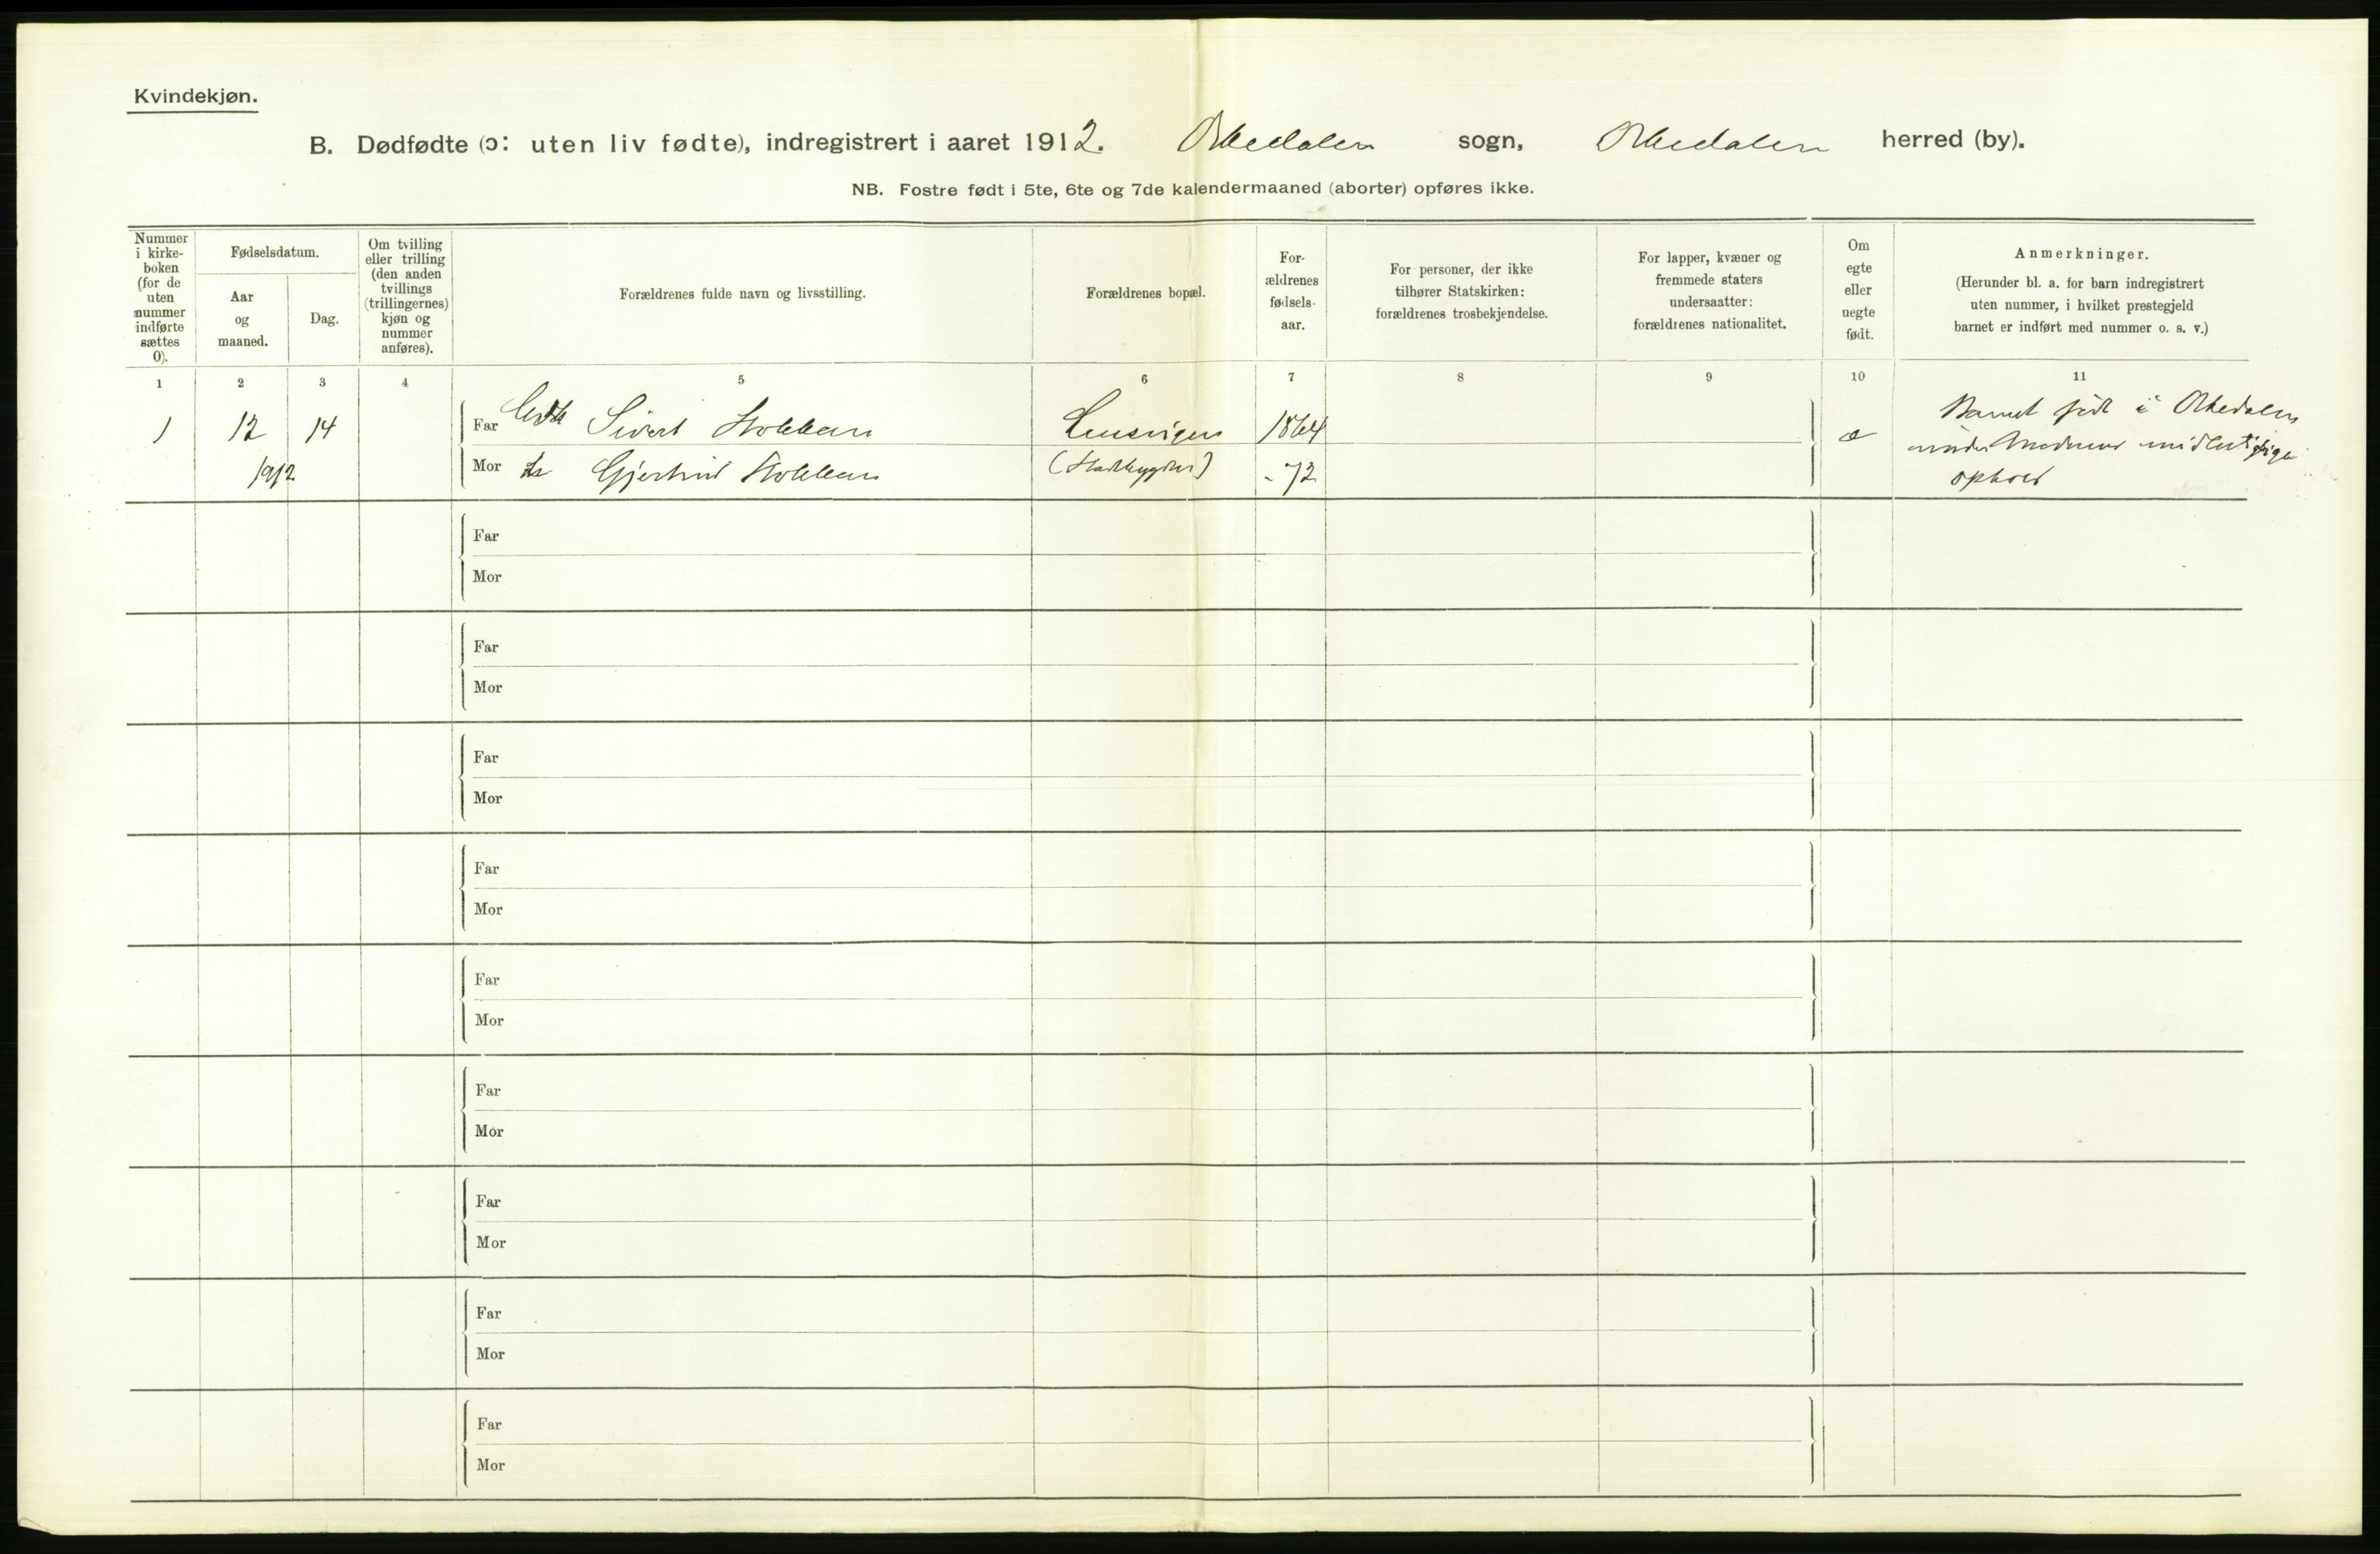 Kvindekjøn.
B. Dødfødte (ɔ: uten liv fødte), indregistrert i aaret 1912. Orkedalen sogn, Orkedalen herred (by).
NB. Fostre født i 5te, 6te og 7de kalendermaaned (aborter) opføres ikke.
Nummer i kirke- boken (for de uten nummer indførte sættes 0).
Fødselsdatum.
Aar og maaned.
Dag.
Om tvilling eller trilling (den anden tvillings (trillingernes) kjøn og nummer anføres).
Forældrenes fulde navn og livsstilling.
Forældrenes bopæl.
For- ældrenes fødsels- aar.
For personer, der ikke tilhører Statskirken: forældrenes trosbekjendelse.
For lapper, kvæner og fremmede staters undersaatter: forældrenes nationalitet.
Om egte eller uegte født.
Anmerkninger.
(Herunder bl. a. for barn indregistrert uten nummer, i hvilket prestegjeld barnet er indført med nummer o. s. v.)
1 2 3 4 5 6 7 8 9 10 11
1 12 14 Far Sivert Stokkan Lensvigen 1864 e Barnet født i Orkedalen
1912 Mor Gjertrud Stokkan (Stadsbygden) - 72 under Moderens midlertidige
ophold
Far
Mor
Far
Mor
Far
Mor
Far
Mor
Far
Mor
Far
Mor
Far
Mor
Far
Mor
Far
Mor